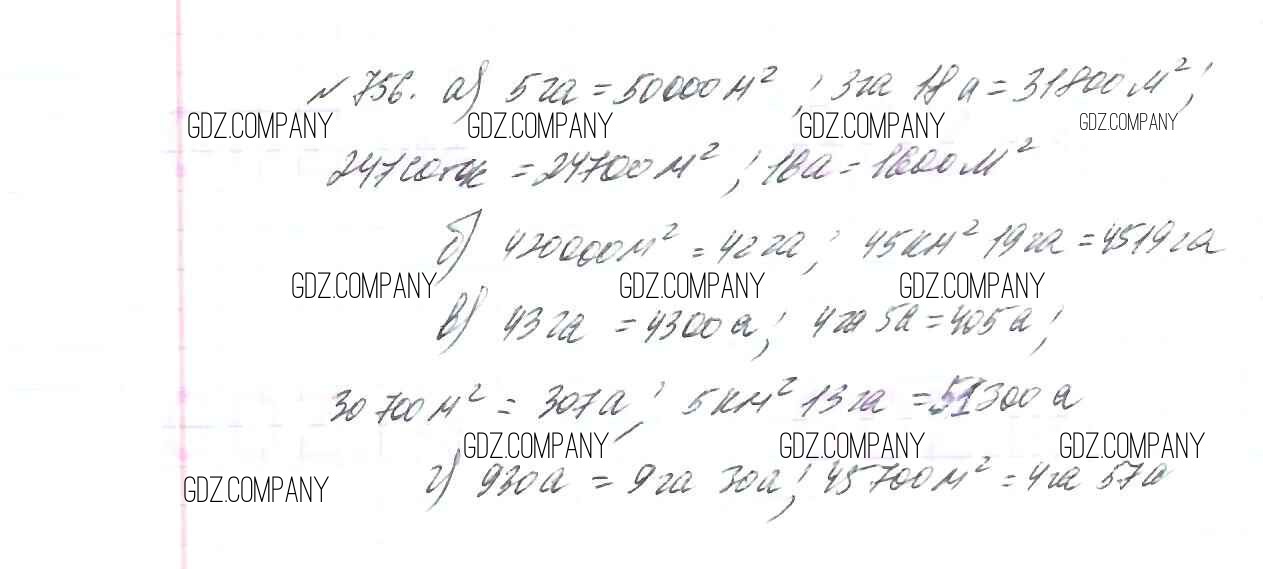 № 756. а) 5 га = 50000 м² ; 3 га 18 а = 31800 м² ;
GDZ.COMPANY GDZ.COMPANY GDZ.COMPANY GDZ.COMPANY
247 соток = 24700 м² ; 16 а = 1600 м²
б) 420000 м² = 42 га ; 45 км² 19 га = 4519 га
GDZ.COMPANY GDZ.COMPANY GDZ.COMPANY
в) 43 га = 4300 а ; 4 га 5 а = 405 а ;
30700 м² = 307 а ; 5 км² 13 га = 51300 а
GDZ.COMPANY GDZ.COMPANY GDZ.COMPANY
г) 930 а = 9 га 30 а ; 45700 м² = 4 га 57 а
GDZ.COMPANY